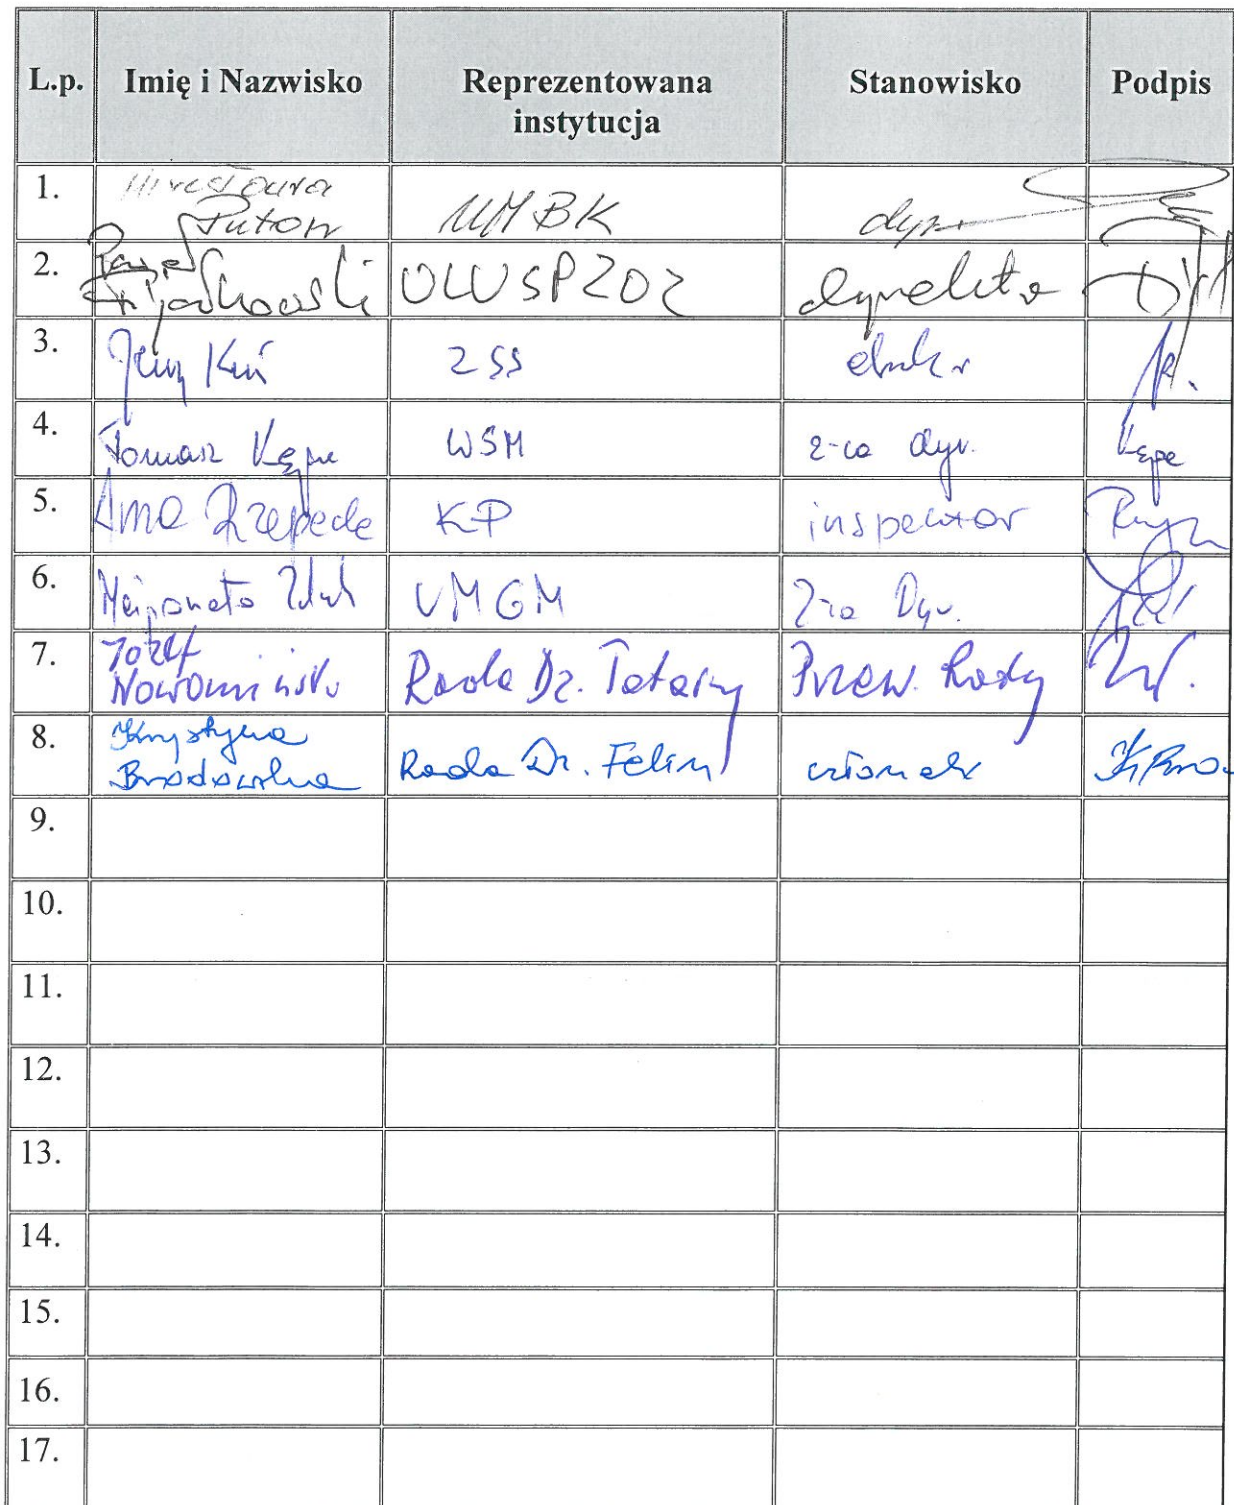 L.p. Imię i Nazwisko Reprezentowana instytucja Stanowisko Podpis
1. Mirosława Putoń UMBK dyr.
2. Paweł UCWSPZOZ dyrektor
3. Jerzy Kuś ZSS
4. Tomasz Kępa WSM z-ca dyr. Kępa
5. Anna Rzepecka KP inspector
6. Małgorzata UMGM Z-ca Dyr.
7. Józef Rada Dz. Tatary Przew. Rady
8. Krystyna Brodowska Rada Dz. Felin członek
9.
10.
11.
12.
13.
14.
15.
16.
17.